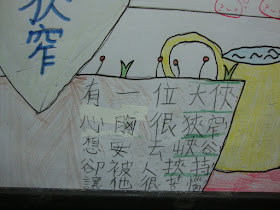 狹窄
有一位大俠
心胸很狹窄
想要去峽谷
卻被人挾持
讓他很苦